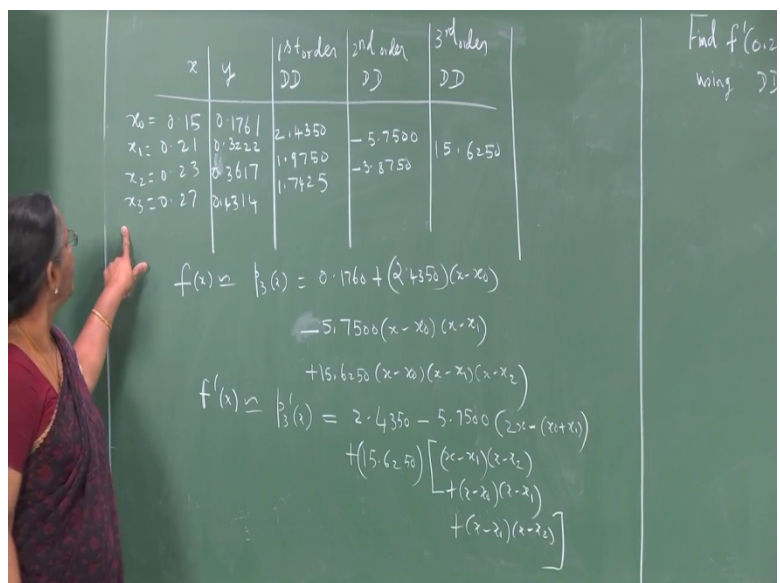 x y 1st order DD 2nd order DD 3rd order DD
x₀ = 0.15 0.1761 2.4350 -5.7500 15.6250
x₁ = 0.21 0.3222 1.9750 -3.8750
x₂ = 0.23 0.3617 1.7425
x₃ = 0.27 0.4314
f(x) ≃ p₃(x) = 0.1760 + (2.4350)(x-x₀)
-5.7500(x-x₀)(x-x₁)
+15.6250(x-x₀)(x-x₁)(x-x₂)
f'(x) ≃ p₃'(x) = 2.4350 - 5.7500(2x-(x₀+x₁))
+(15.6250)[(x-x₁)(x-x₂)
+(x-x₀)(x-x₁)
+(x-x₁)(x-x₂)]
Find f'(0.2
using DD